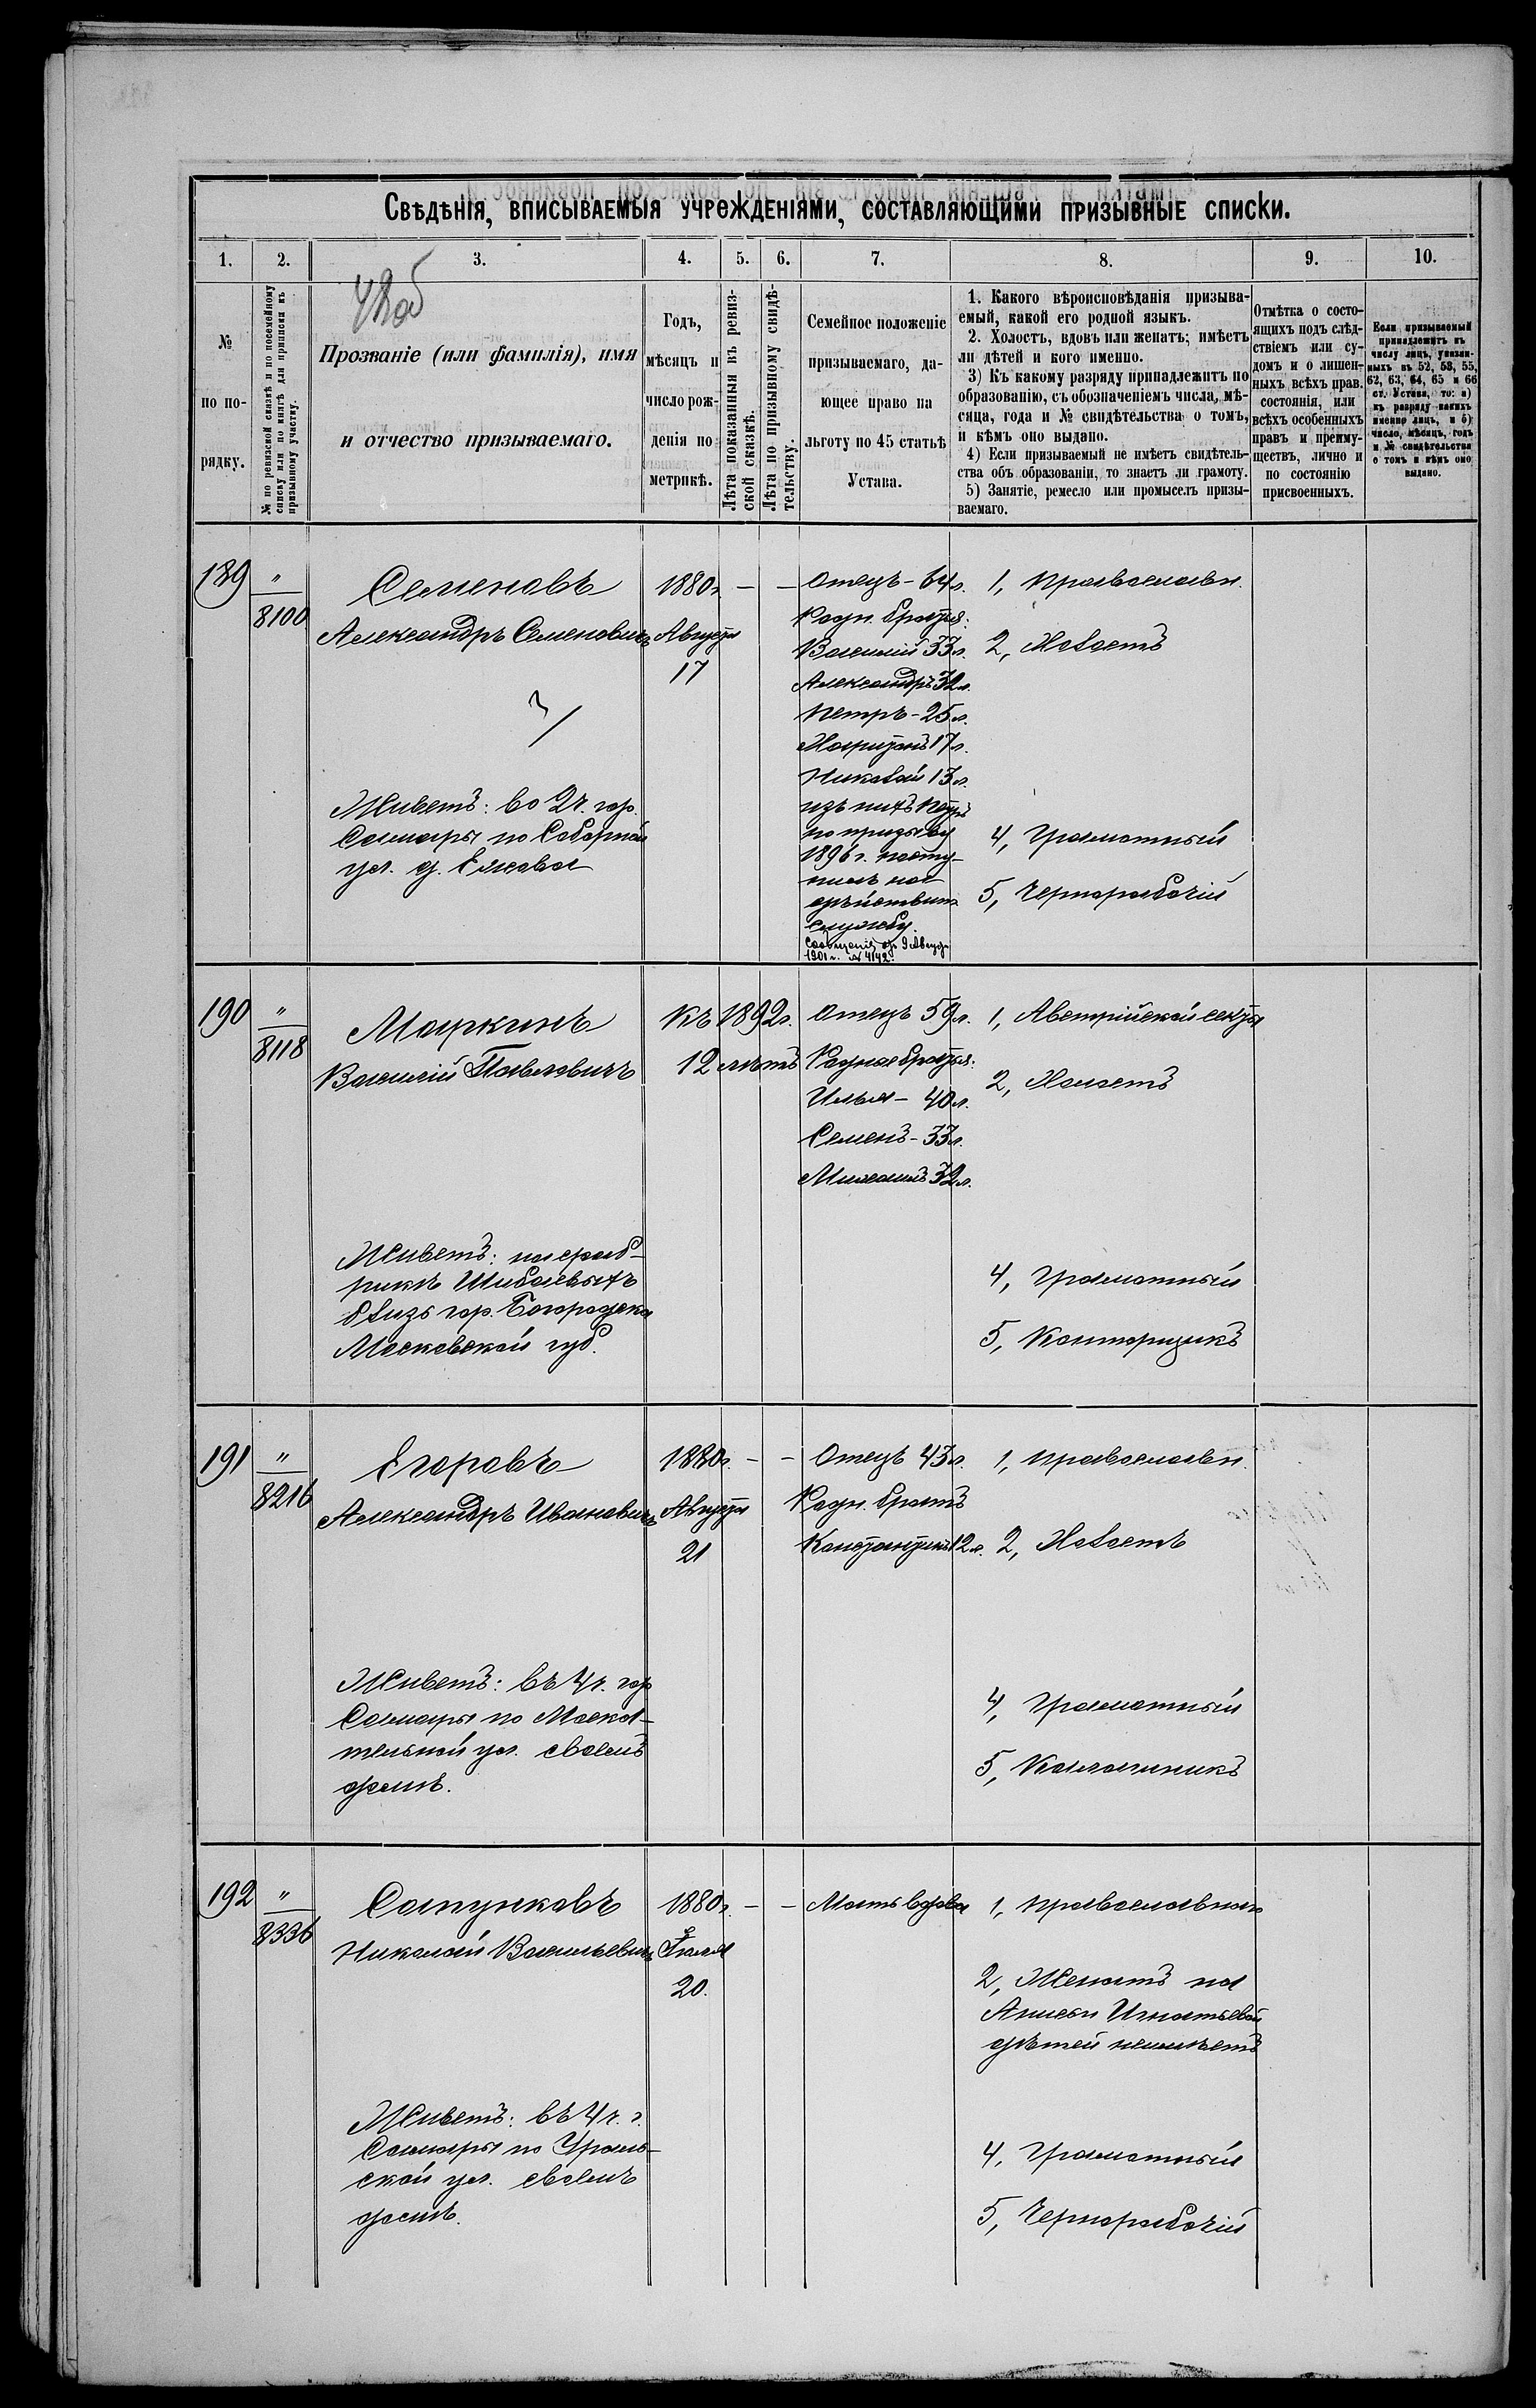 Свѣдѣнія, вписываемыя учрежденіями, составляющими призывные списки.
1. 2. 3. 4. 5. 6. 7. 8. 9. 10.
№ по по-рядку.
№ по ревизской сказкѣ и по посемейному
списку или по книгѣ для приписки къ
призывному участку.
Прозваніе (или фамилія), имя
и отчество призываемаго.
Годъ,
мѣсяцъ и
число рож-
денія по
метрикѣ.
Лѣта показанныя въ ревиз-
ской сказкѣ.
Лѣта по призывному свидѣ-
тельству.
Семейное положеніе
призываемаго, да-
ющее право на
льготу по 45 статьѣ
Устава.
1. Какого вѣроисповѣданія призыва-
емый, какой его родной языкъ.
2. Холостъ, вдовъ или женатъ; имѣетъ
ли дѣтей и кого именно.
3) Къ какому разряду принадлежитъ по
образованію, съ обозначеніемъ числа, мѣ-
сяца, года и № свидѣтельства о томъ,
и кѣмъ оно выдано.
4) Если призываемый не имѣетъ свидѣтель-
ства объ образованіи, то знаетъ ли грамоту.
5) Занятіе, ремесло или промыселъ призы-
ваемаго.
Отмѣтка о состо-
ящихъ подъ слѣд-
ствіемъ или су-
домъ и о лишен-
ныхъ всѣхъ прав.
состоянія, или
всѣхъ особенныхъ
правъ и преиму-
ществъ, лично и
по состоянію
присвоенныхъ.
Если призываемый
принадлежитъ къ
числу лицъ, указан-
ныхъ въ 52, 53, 55,
62, 63, 64, 65 и 66
ст. Устава, то: а)
къ разряду какихъ
именно лицъ, и б)
число, мѣсяцъ, годъ
и № свидѣтельства
о томъ и кѣмъ оно
выдано.
189
"
8100
Семеновъ
Александръ Семеновичъ
Живетъ: во 2 ч. гор.
Самары по Соборной
ул. д.
1880 г.
Августа
17
— —
Отецъ - 64 л.
Родн. братья:
Василій 33 л.
Александръ 32 л.
Петръ - 25 л.
Харитонъ 17 л.
Николай 13 л.
изъ нихъ Петръ
по призыву
1896 г. посту-
пилъ на
дѣйствит.
службу.
Сообщеніе отъ 9 Август.
1901 г. № 4142.
1, Православн.
2, Холостъ
4, Грамотный
5, Чернорабочій
190
"
8118
Маркинъ
Василій Павловичъ
Живетъ: на фаб-
рикѣ Шибаевыхъ
близъ гор. Богородска
Московской губ.
Къ 1892 г.
12 лѣтъ
Отецъ 59 л.
Родные братья:
Илья - 40 л.
Семенъ - 33 л.
Михаилъ 32 л.
1, Австрійской секты
2, Холостъ
4, Грамотный
5, Конторщикъ
191
"
8216
Егоровъ
Александръ Ивановичъ
Живетъ: въ 4 ч. гор
Самары по Москa-
тельной ул. своемъ
домѣ.
1880 г.
Августа
21
— —
Отецъ 43 л.
Родн. братъ
Константинъ 12 л.
1, Православн.
2, Холостъ
4, Грамотный
5, Калачникъ
192
"
8336
Сапунковъ
Николай Васильевичъ
Живетъ: въ 4 ч. г.
Самары по Ураль-
ской ул. своемъ
домѣ.
1880 г.
Іюля
20.
— —
Мать вдова
1, Православнаго
2, Женатъ на
Аннѣ Игнатьевой
дѣтей неимѣетъ
4, Грамотный
5, Чернорабочій